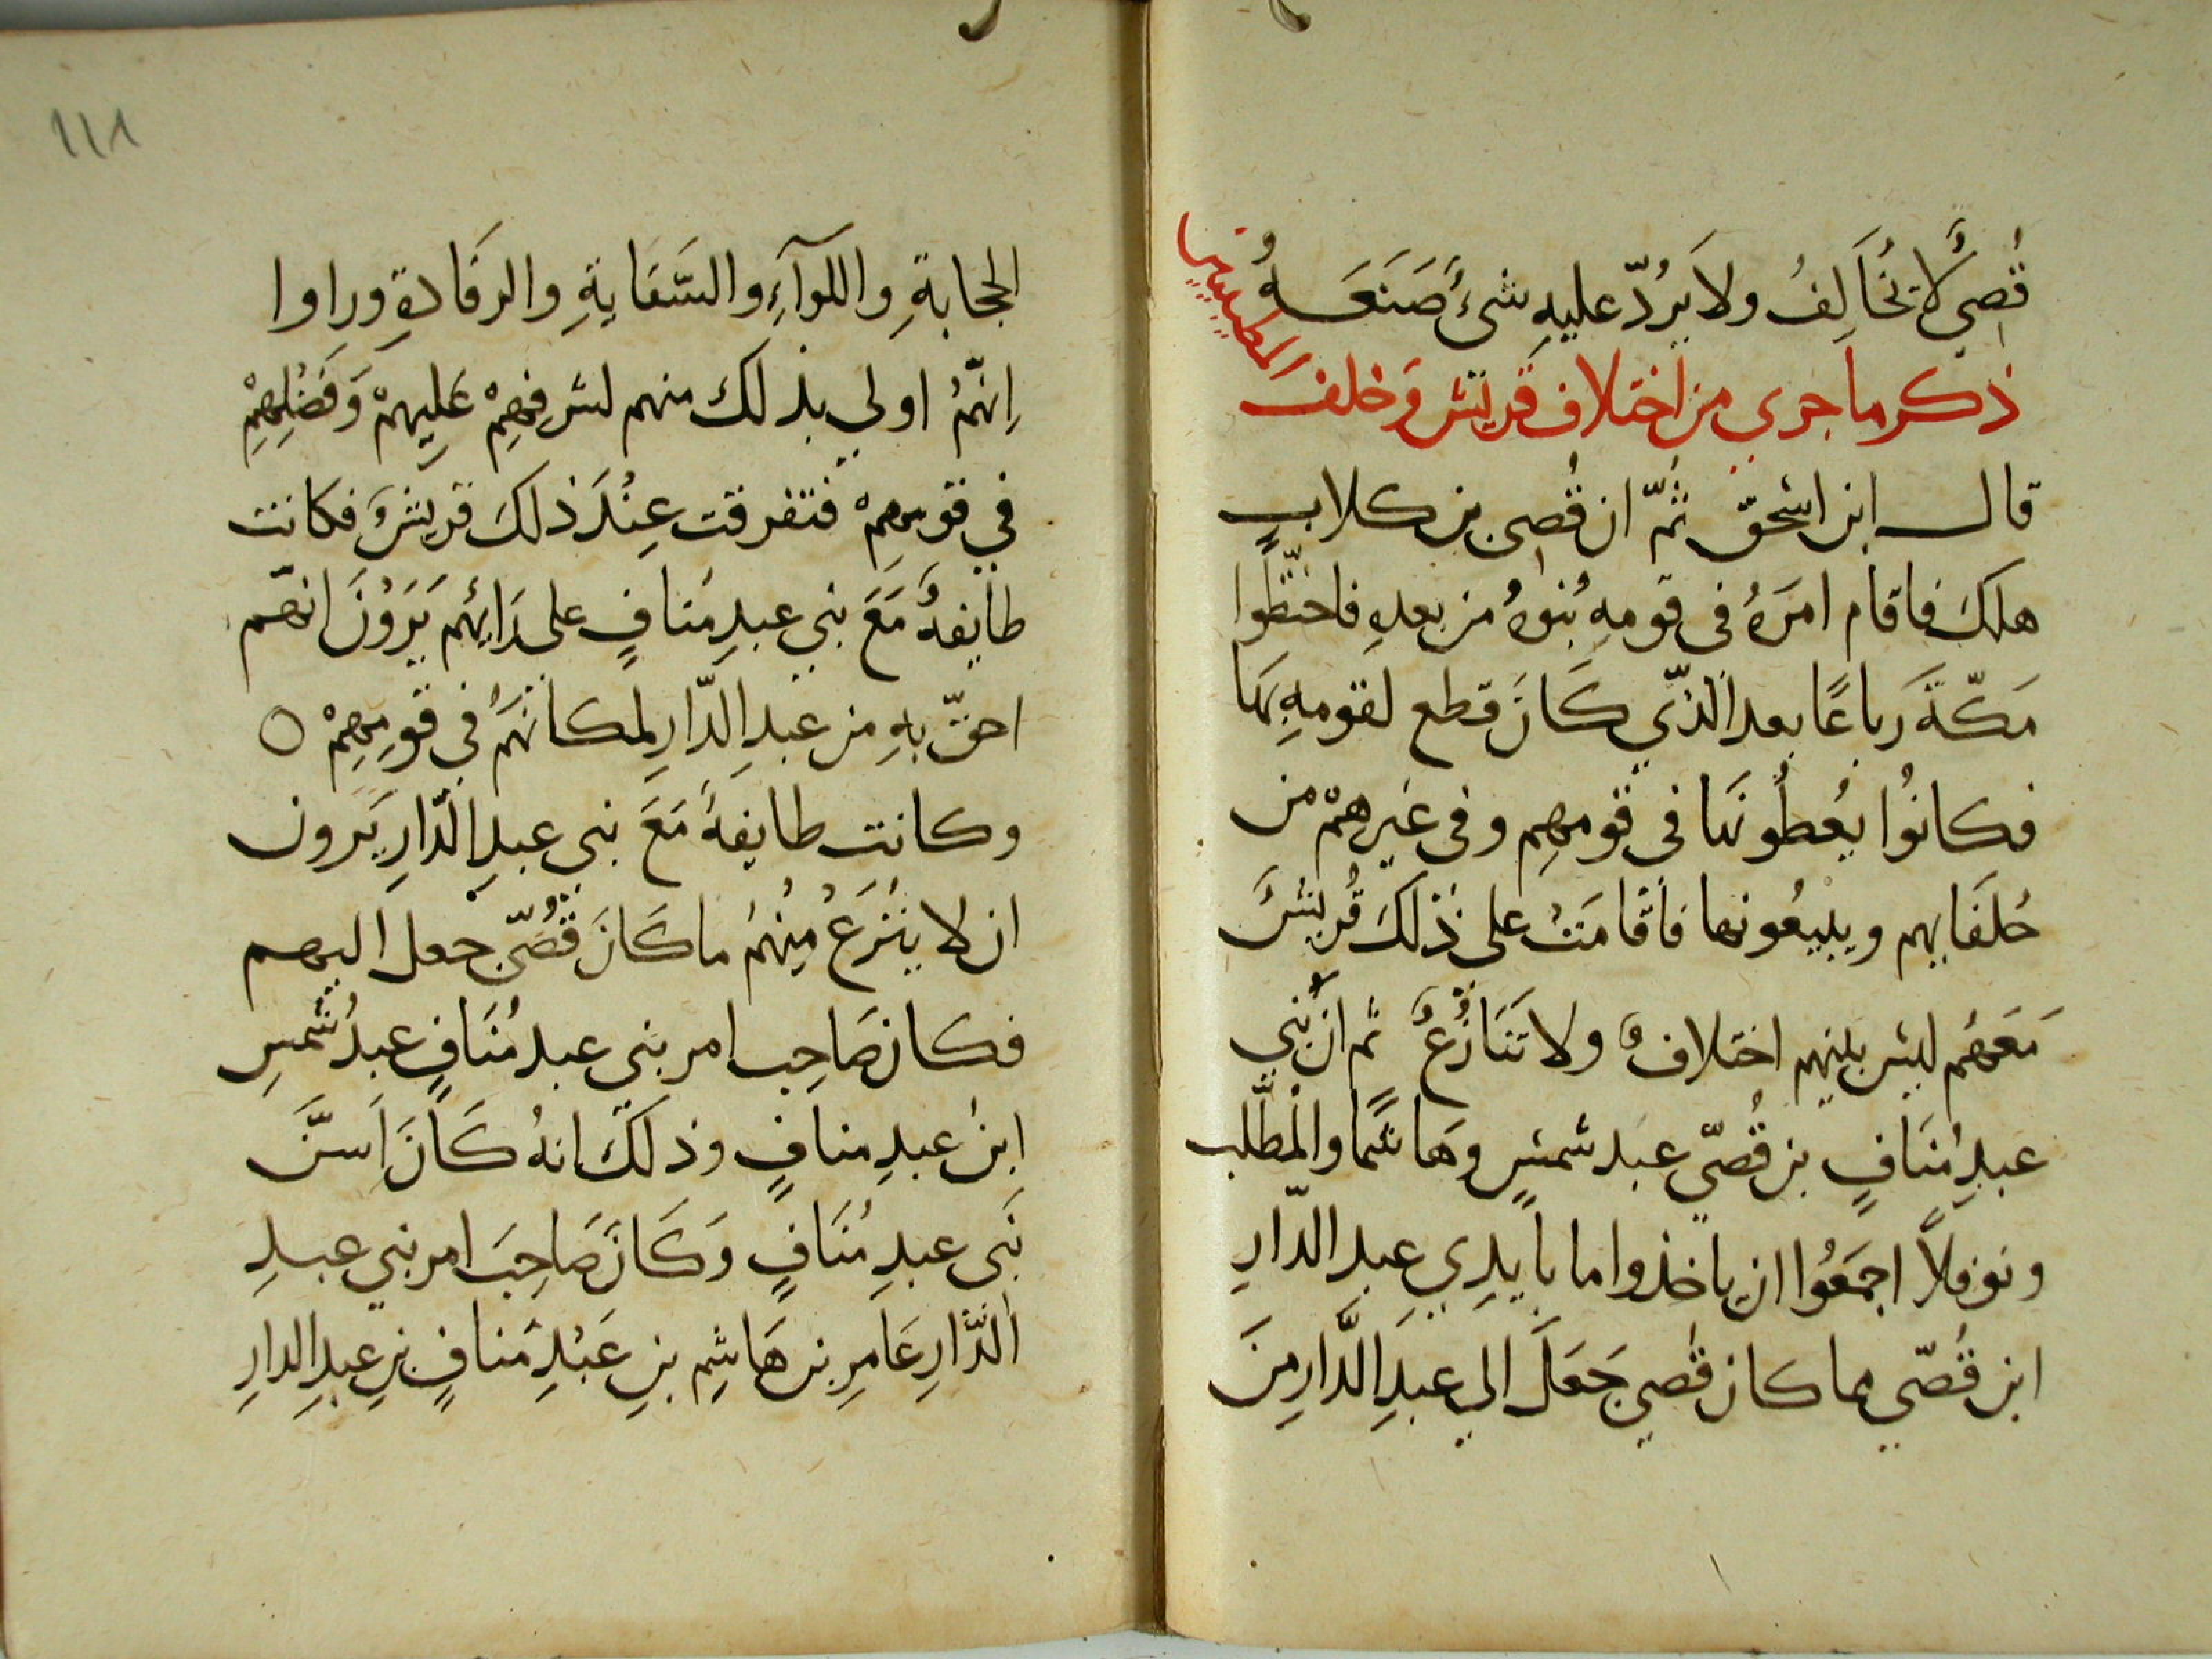 قُصِيٌّ لا يُخَالِفُ ولا يَرُدّ عليهِ شيءٌ صَنَعَهُ
ذكر ما جرى من اختلاف قريش وَحلف
المطيبين
قال ابن اسحق ثُمّ ان قُصى بن كلابٍ
هلكَ فاقام امرَهُ فى قومهِ بُنوهُ من بعدهِ فاختطّوا
مَكّةَ رباعًا بعد الذّي كَانَ قطع لقومهِ بَها
فكانُوا يُعطُونَها فى قومهِم وفى غَيرهمْ من
حُلفَايهم ويبيعُونها فاقامَتْ على ذلكَ قُريشٌ
مَعَهُم ليس بينهم اختلافٌ ولا تَنَازُعٌ ثم انّ بني
عبدِ مُنَافٍ بن قُصيّ عبَد شمسٍ وهَاشمًا والمُطّلب
ونوفلاً اجمَعُوا ان ياخذوا ما بايدِي عبد الدّارِ
ابن قُصّي مما كان قُصي جَعَلَ الي عبدِ الدَّارِ مِنَ
الحجابةِ واللوآءِ والسّقايةِ والرفَادةِ وراوا
اِنّهُم اولي بذلك منهم لشرفِهِمْ عَلِيهمْ وَفَضْلِهِمِ
في قومِهِمْ فتفرقت عِنْدَ ذلكَ قريشٌ فكانت
طايفةٌ مَعَ بني عبدِ مُنافٍ على رَايهُم يَرَوْنَ انهّم
احقّ بهِ من عبدِ الدّارِ لمكانَهُم في قومِهِمْ ٥
وكانت طايفةٌ مَعَ بني عبدِ الدّارِ يَرون
ان لا يُنْزَعُ مِنْهُم ما كَانَ قُصُيّ جعل اليهم
فكان صَاحِب امر بني عبد مُنَافٍ عبدُ شمسِ
ابن عبدِ منافٍ وذلكَ انهُ كَانَ اَسنَّ
بَني عبدِ مُنَافٍ وَكَانَ صَاحِبَ امر بني عبدِ
الدَّارِ عَامِرِ بن هَاشِمِ بنِ عَبْدِ مَنافٍ بنِ عبدِ الدارِ
١١١